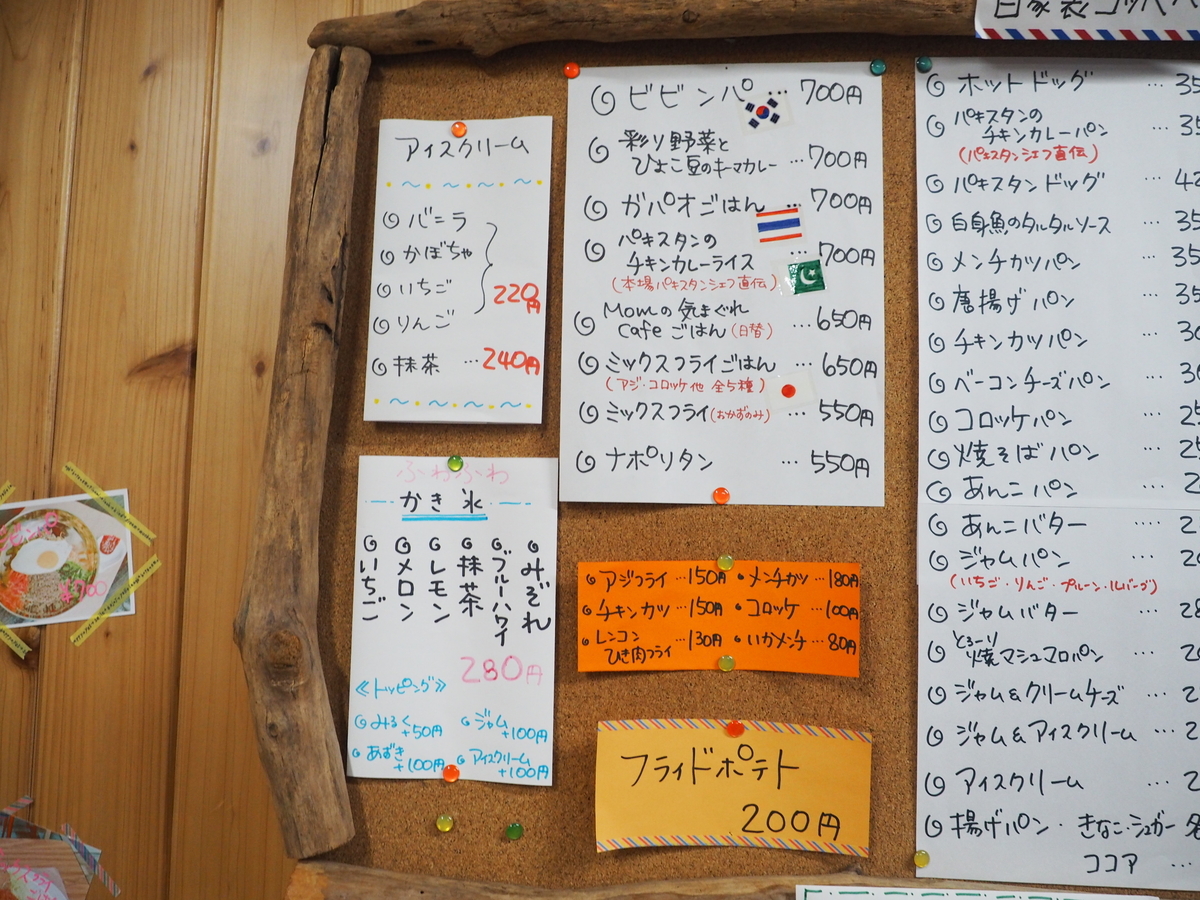 アイスクリーム
バニラ
かぼちゃ
いちご
りんご
220円
抹茶 …240円
ふわふわ
かき氷
みぞれ
ブルーハワイ
抹茶
レモン
メロン
いちご
280円
≪トッピング≫
みるく+50円
ジャム+100円
あずき+100円
アイスクリーム+100円
ビビンパ … 700円
彩り野菜と
ひよこ豆のキーマカレー …700円
ガパオごはん … 700円
パキスタンの
チキンカレーライス …700円
(本場パキスタンシェフ直伝)
Momの気まぐれ
cafeごはん(日替) …650円
ミックスフライごはん …650円
(アジ・コロッケ他 全5種)
ミックスフライ(おかずのみ) …550円
ナポリタン … 550円
アジフライ …150円
メンチカツ …180円
チキンカツ …150円
コロッケ …100円
レンコン
ひき肉フライ …130円
いかメンチ …80円
フライドポテト
200円
自家製コッペパ
ホットドッグ … 35
パキスタンの
チキンカレーパン … 35
(パキスタンシェフ直伝)
パキスタンドッグ … 42
白身魚のタルタルソース … 35
メンチカツパン … 35
唐揚げパン … 35
チキンカツパン … 30
ベーコンチーズパン … 30
コロッケパン … 25
焼そばパン … 25
あんこパン … 2
あんこバター …. 2
ジャムパン …. 20
(いちご・りんご・プルーン・ルバーブ)
ジャムバター …. 2
とろーり
焼マシュマロパン … 20
ジャム&クリームチーズ … 2
ジャム&アイスクリーム … 2
アイスクリーム … 2
揚げパン・きなこ・シュガー
ココア …